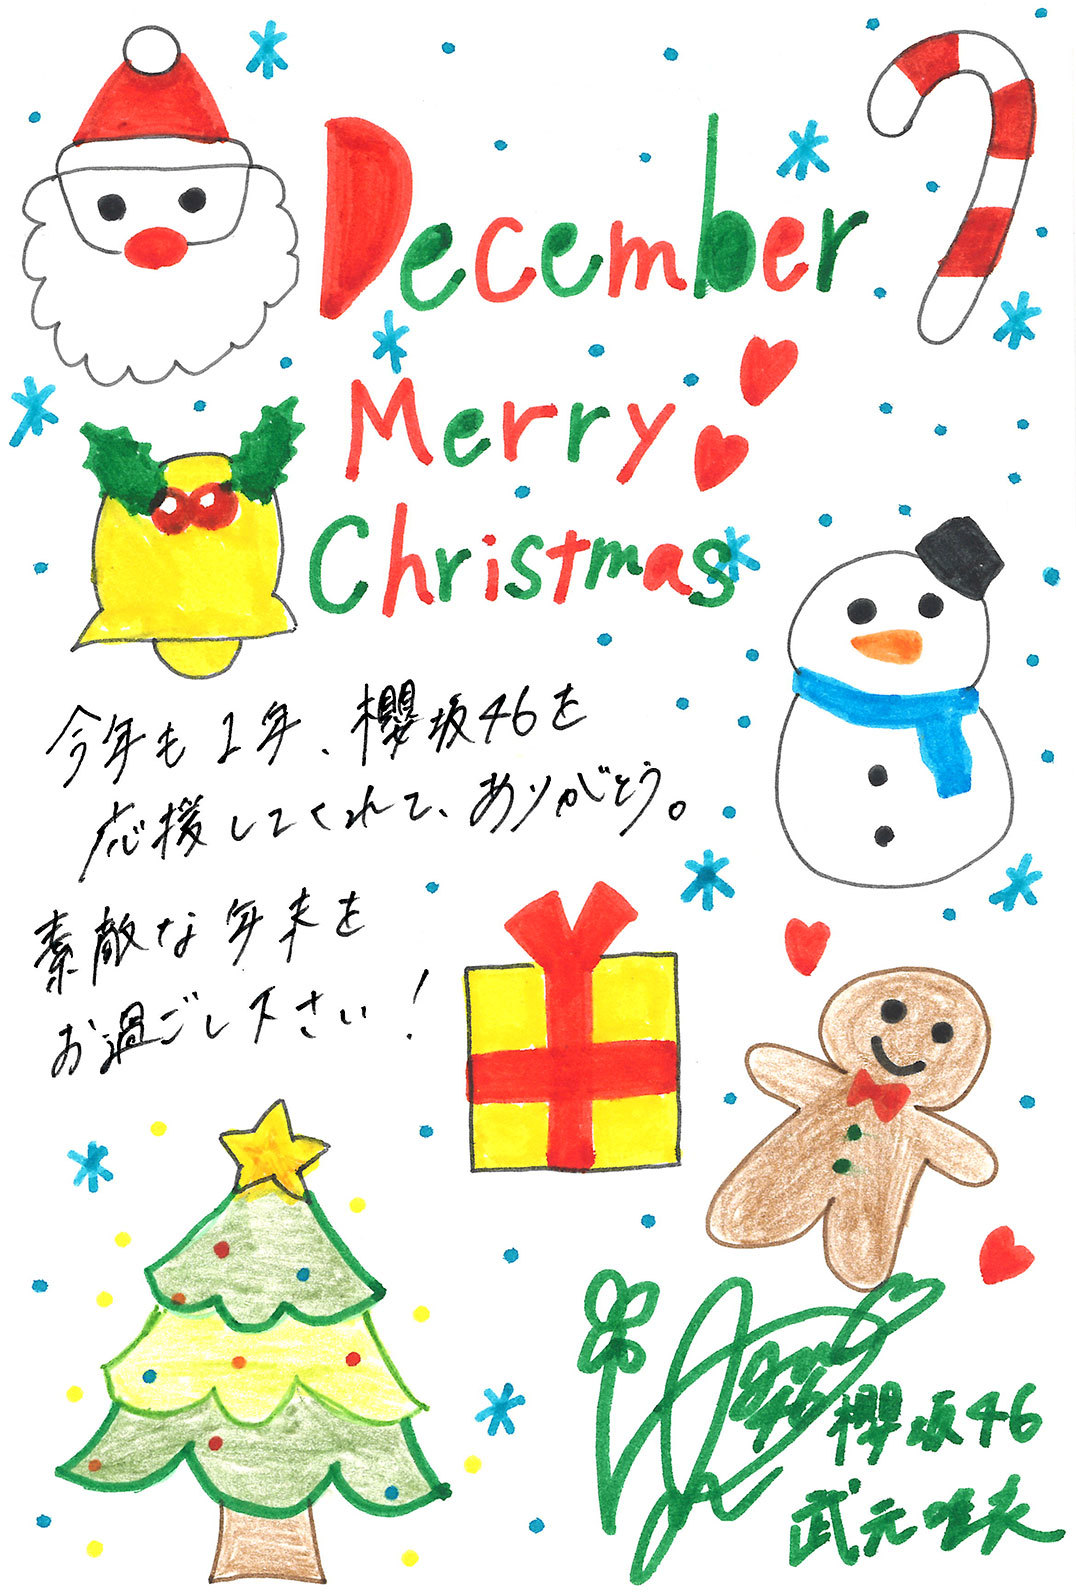 December
Merry
Christmas
今年も1年、櫻坂46を
応援してくれて、ありがとう。
素敵な年末を
お過ごし下さい！
櫻坂46
武元唯衣